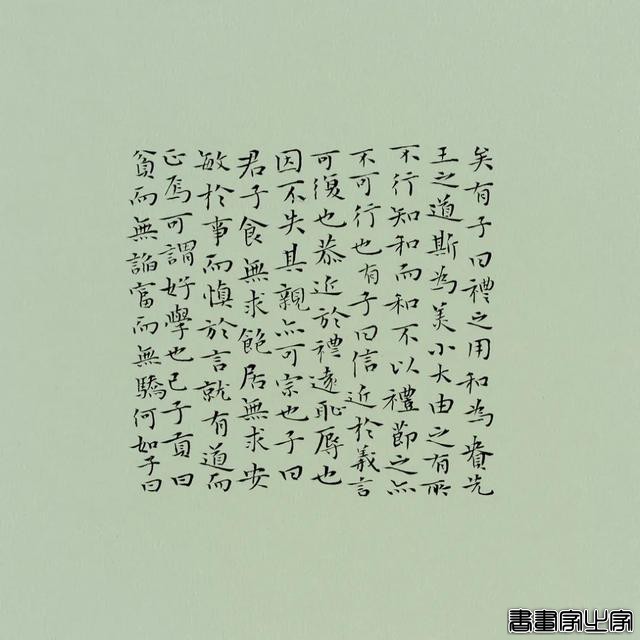 矣有子曰禮之用和為貴先
王之道斯為美小大由之有所
不行知和而和不以禮節之亦
不可行也有子曰信近於義言
可復也恭近於禮遠恥辱也
因不失其親亦可宗也子曰
君子食無求飽居無求安
敏於事而慎於言就有道而
正焉可謂好學也已子貢曰
貧而無諂富而無驕何如子曰
書畫